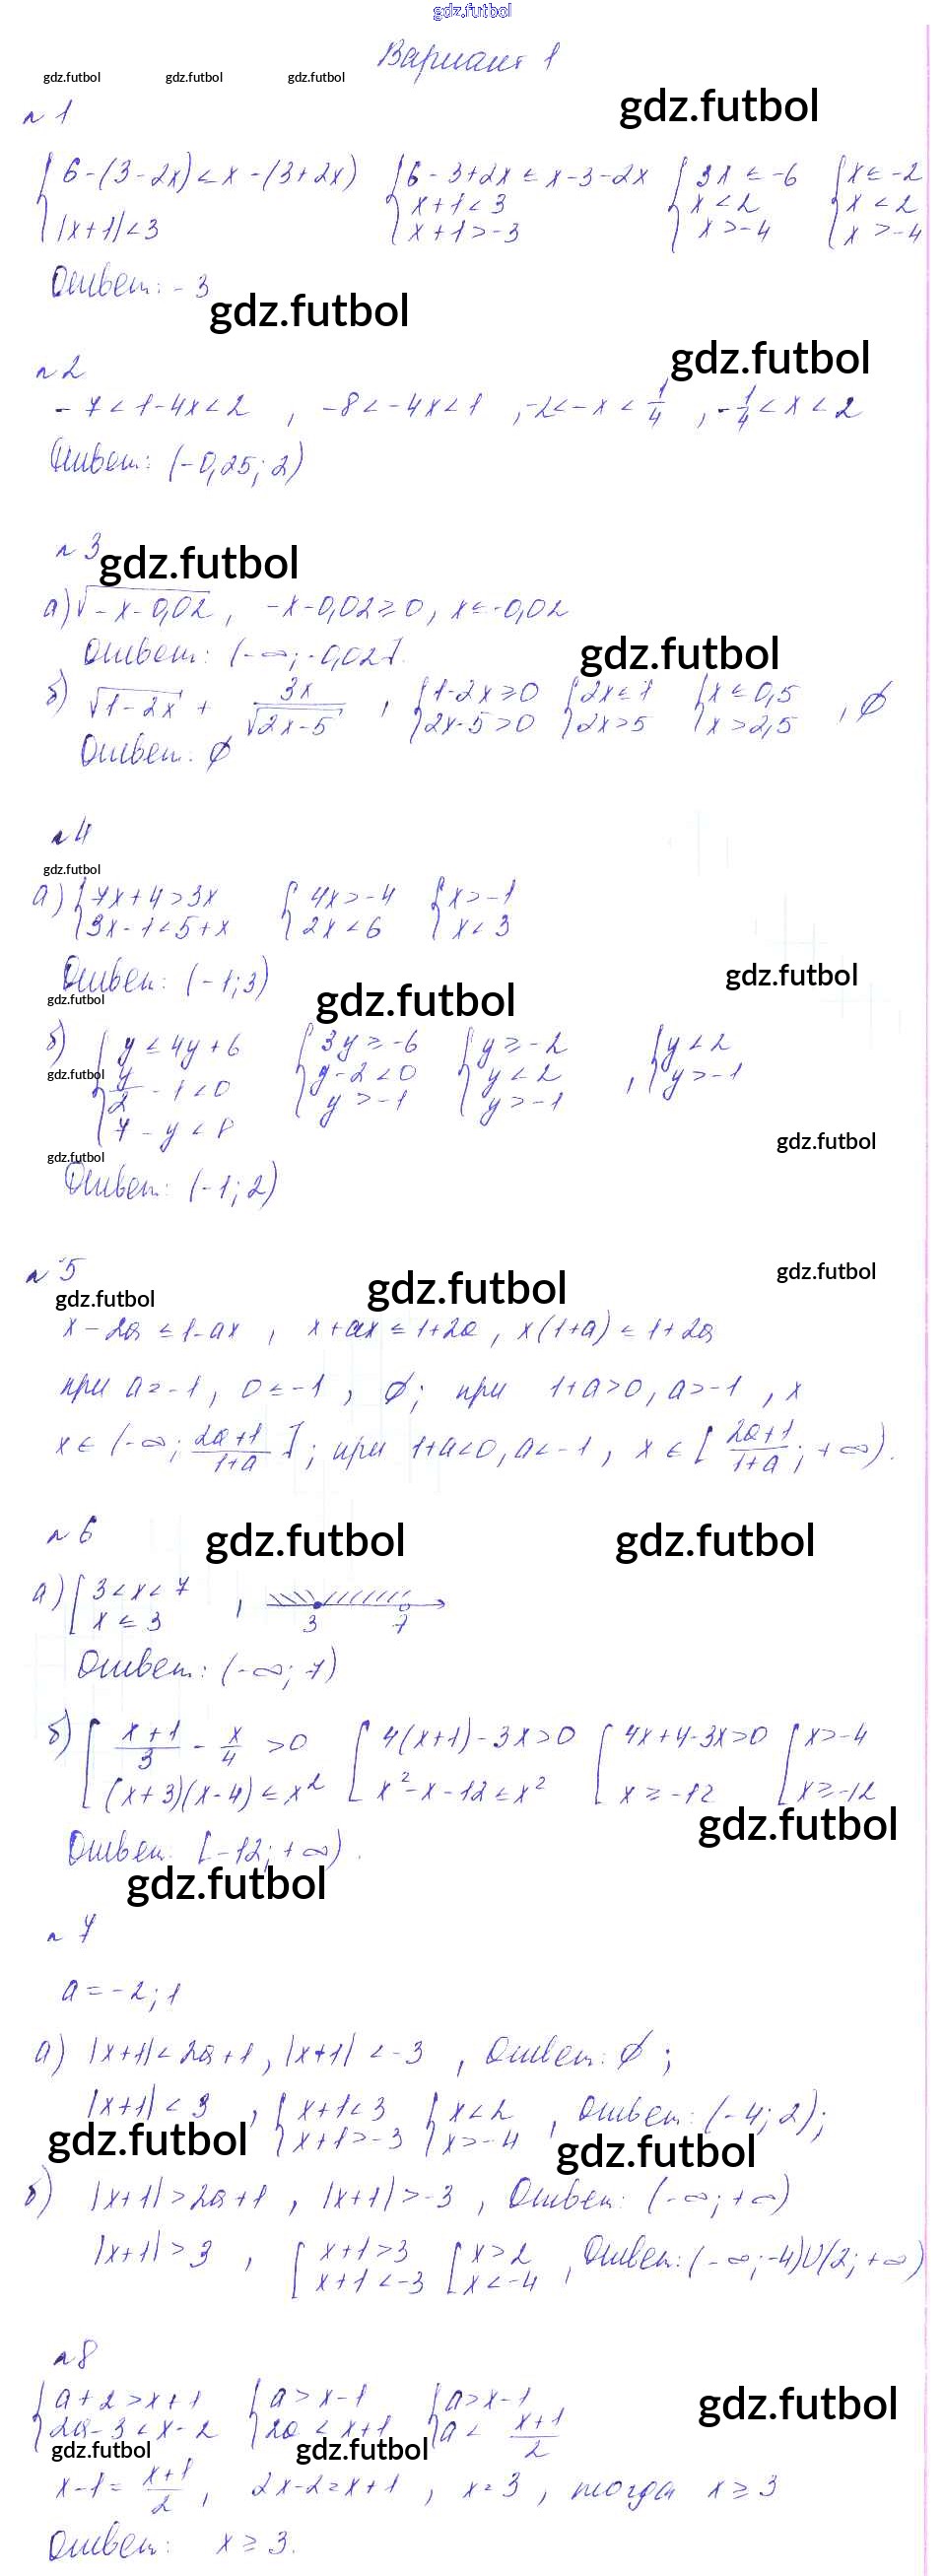 gdz.futbol
Вариант 1
gdz.futbol gdz.futbol gdz.futbol
gdz.futbol
n 1
{ 6-(3-2x) < x-(3+2x) { 6-3+2x ≤ x-3-2x { 3x ≤ -6 { x ≤ -2
|x+1| < 3 x+1 < 3 x < 2 x < 2
x+1 > -3 x > -4 x > -4
Ответ: -3
gdz.futbol
gdz.futbol
n 2
-7 < 1-4x < 2 , -8 < -4x < 1 , -2 < -x < 1/4 , -1/4 < x < 2
Ответ: (-0,25; 2)
n 3
gdz.futbol
а) √(-x-0,02) , -x-0,02 ≥ 0, x ≤ -0,02
Ответ: (-∞; -0,02].
gdz.futbol
б) √(1-2x) + 3x/√(2x-5) , { 1-2x ≥ 0 { 2x ≤ 1 { x ≤ 0,5 , ∅
2x-5 > 0 2x > 5 x > 2,5
Ответ: ∅
n 4
gdz.futbol
а) { 7x+4 > 3x { 4x > -4 { x > -1
3x-1 < 5+x 2x < 6 x < 3
Ответ: (-1; 3)
gdz.futbol
gdz.futbol
gdz.futbol
б) { y ≤ 4y+6 { 3y ≥ -6 { y ≥ -2 , { y < 2
gdz.futbol
y/2 - 1 < 0 y-2 < 0 y < 2 y > -1
7-y < 8 y > -1 y > -1
gdz.futbol
gdz.futbol
Ответ: (-1; 2)
n 5
gdz.futbol
gdz.futbol
gdz.futbol
x-2a ≤ 1-ax , x+ax ≤ 1+2a , x(1+a) ≤ 1+2a
при a=-1, 0 ≤ -1 , ∅; при 1+a>0, a>-1 , x
x ∈ (-∞; (2a+1)/(1+a)]; при 1+a<0, a<-1 , x ∈ [(2a+1)/(1+a); +∞).
n 6
gdz.futbol gdz.futbol
а) [ 3 < x < 7 ,
x ≤ 3 3 7
Ответ: (-∞; 7)
б) [ (x+1)/3 - x/4 > 0 [ 4(x+1)-3x > 0 [ 4x+4-3x > 0 [ x > -4
(x+3)(x-4) ≤ x² x²-x-12 ≤ x² x ≥ -12 x ≥ -12
gdz.futbol
Ответ: [-12; +∞).
gdz.futbol
n 7
a = -2; 1
а) |x+1| < 2a+1, |x+1| < -3 , Ответ: ∅ ;
|x+1| < 3 , { x+1 < 3 { x < 2 , Ответ: (-4; 2);
x+1 > -3 x > -4
gdz.futbol gdz.futbol
б) |x+1| > 2a+1 , |x+1| > -3 , Ответ: (-∞; +∞)
|x+1| > 3 , [ x+1 > 3 [ x > 2 , Ответ: (-∞; -4)U(2; +∞)
x+1 < -3 x < -4
n 8
{ a+2 > x+1 { a > x-1 { a > x-1
2a-3 < x-2 2a < x+1 a < (x+1)/2
gdz.futbol
gdz.futbol gdz.futbol
x-1 = (x+1)/2 , 2x-2 = x+1 , x = 3 , тогда x ≥ 3
Ответ: x ≥ 3.